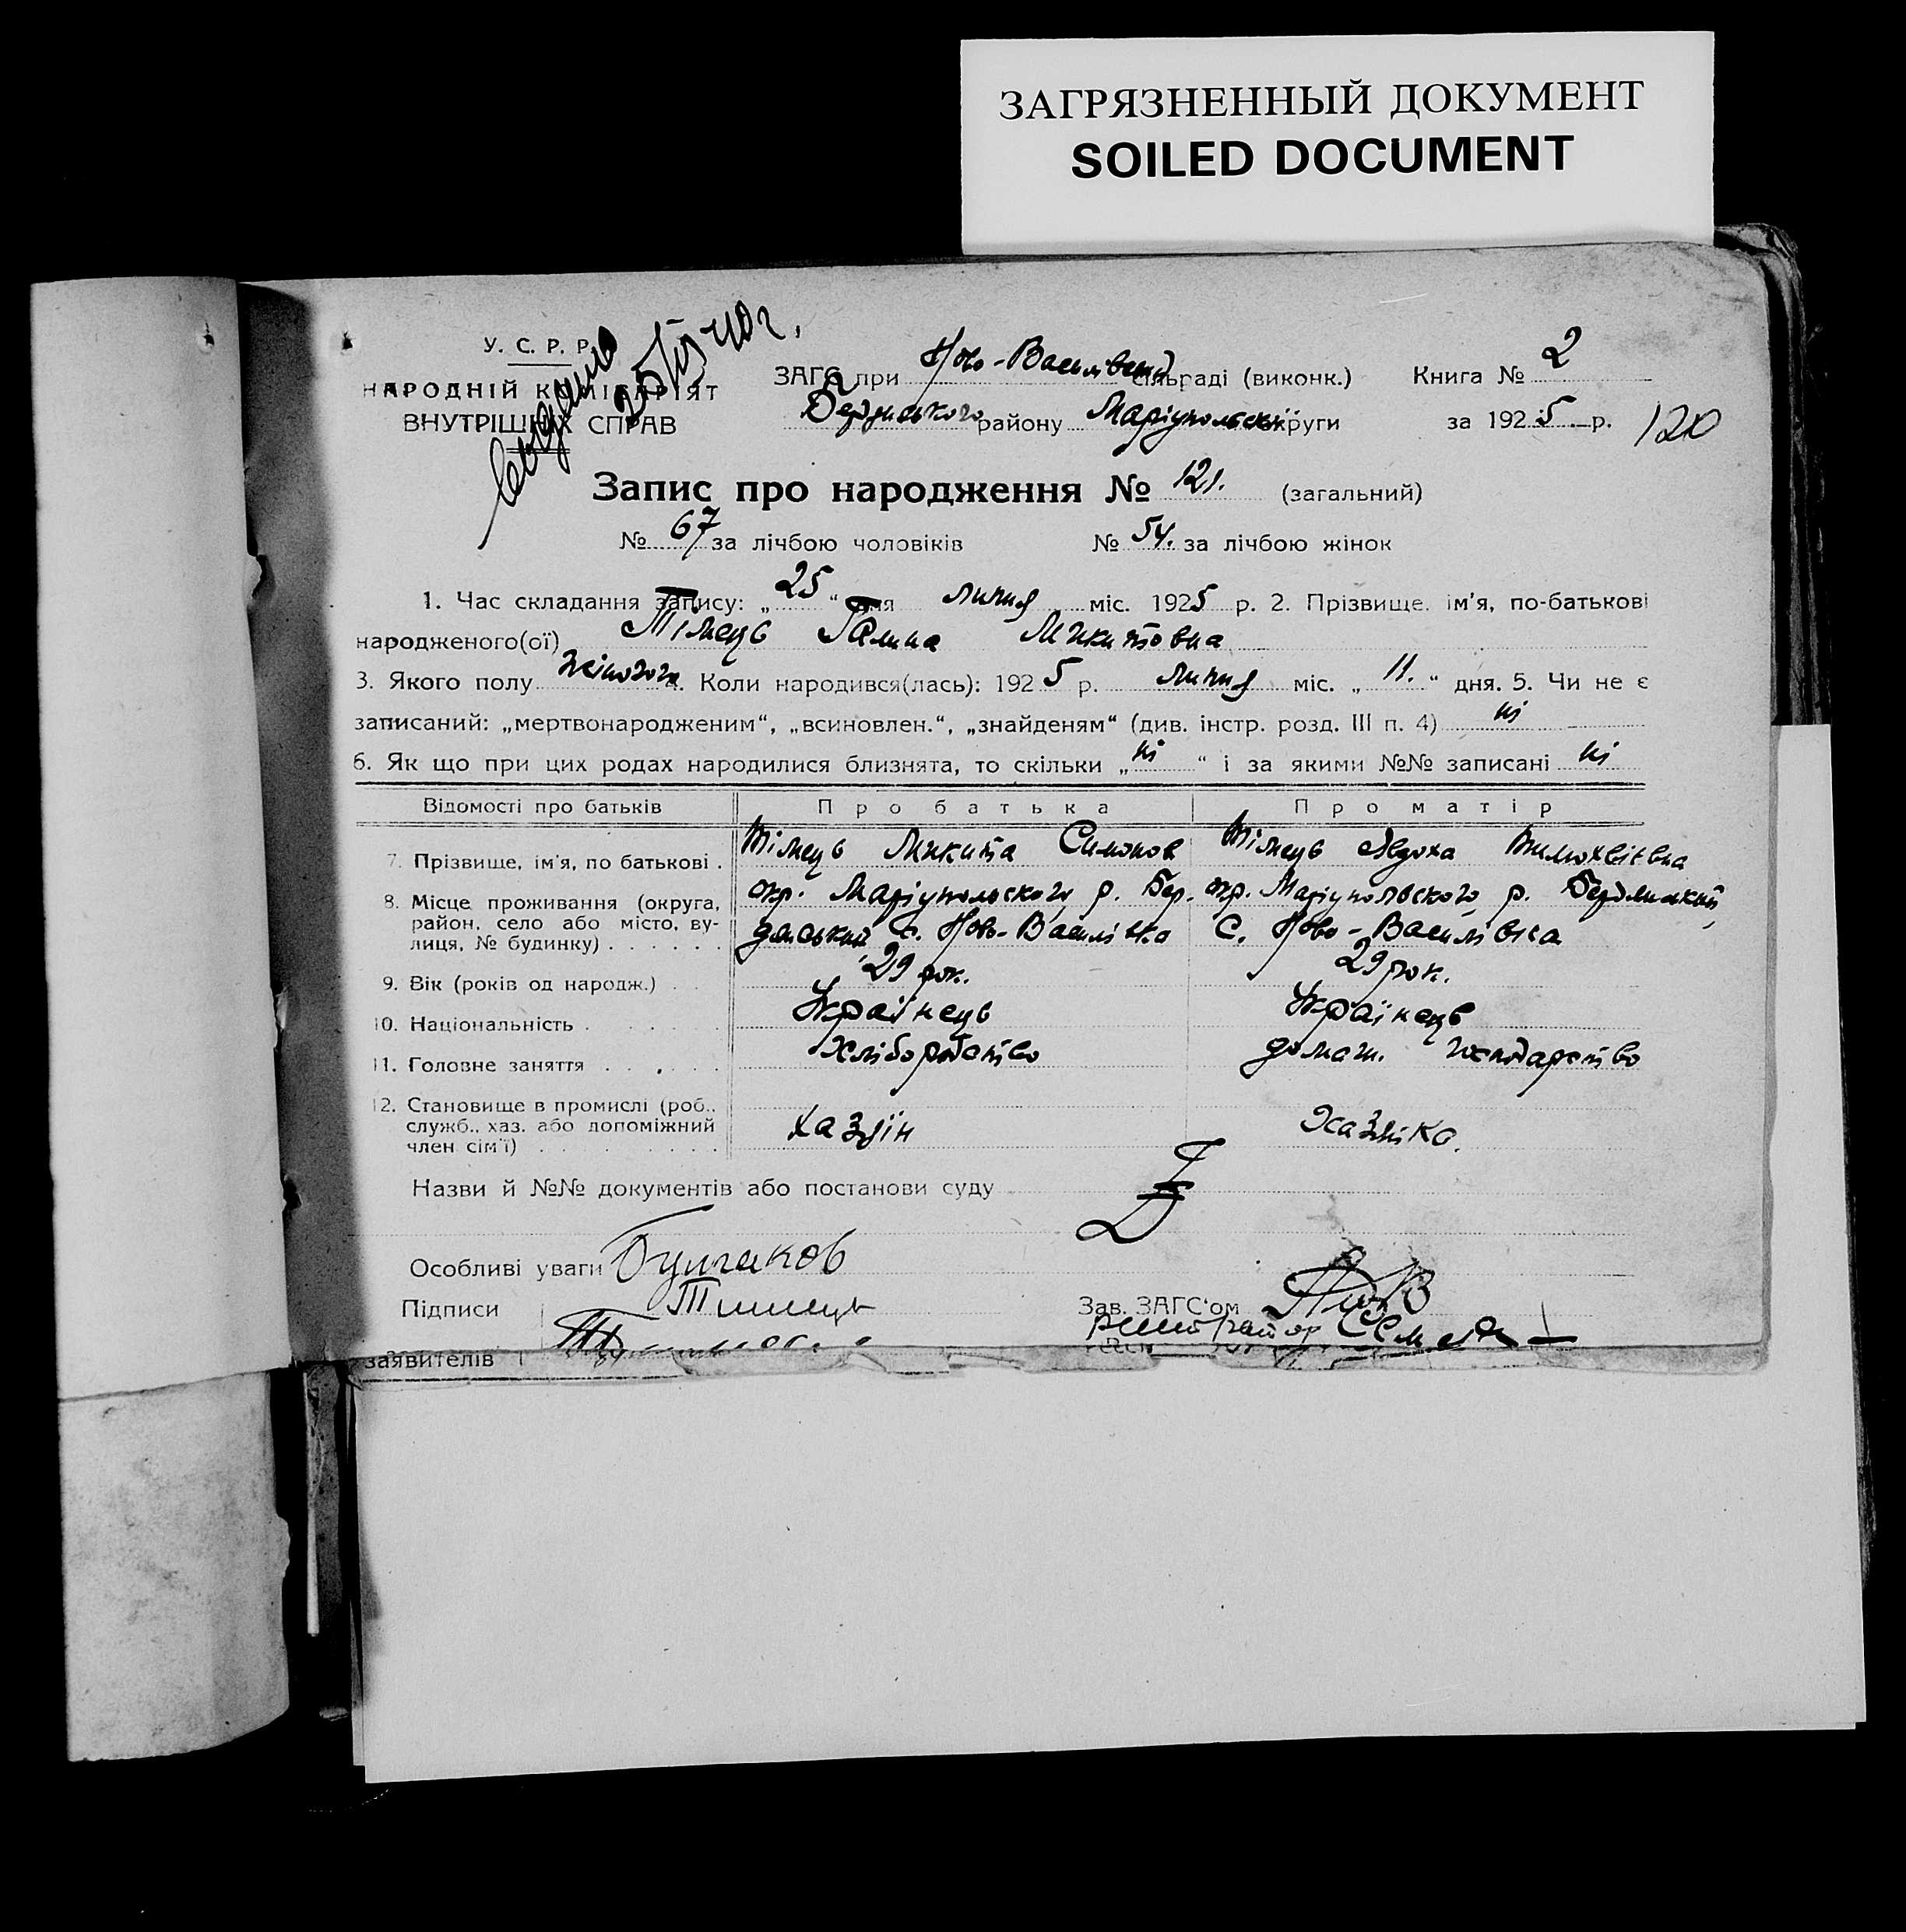 ЗАГРЯЗНЕННЫЙ ДОКУМЕНТ
SOILED DOCUMENT
У. С. Р. Р.
НАРОДНІЙ КОМІСАРІЯТ
ВНУТРІШНІХ СПРАВ
25/IV 40 г.
ЗАГС при Ново-Василівській сільраді (виконк.) Книга № 2
району Маріупольської округи за 1925 р. 120
Запис про народження № 121. (загальний)
№ 67 за лічбою чоловіків № 54. за лічбою жінок
1. Час складання запису: „25“ дня липня міс. 1925 р. 2. Прізвище, ім'я, по-батькові
народженого(ої) Тімець Галина Микитовна
3. Якого полу жіночого 4. Коли народився(лась): 1925 р. липня міс. „11.“ дня. 5. Чи не є
записаний: „мертвонародженим“, „всиновлен.“, „знайденям“ (див. інстр. розд. III п. 4) ні
6. Як що при цих родах народилися близнята, то скільки „ні“ і за якими №№ записані ні
Відомості про батьків Про батька Про матір
7. Прізвище, ім'я, по батькові . Тімець Микита Симонов Тімець Явдоха
8. Місце проживання (округа, район, село або місто, вулиця, № будинку) . . . . . . окр. Маріупольского р. Бер- окр. Маріупольского р.
с. Ново-Василівка С. Ново-Василівка
9. Вік (років од народж.) . . 29 рок. 29 рок.
10. Національність . . . . . Українець Українець
11. Головне заняття . . . . . Хліборобство домаш. господарство
12. Становище в промислі (роб., служб., хаз. або допоміжний член сім'ї) . . . . . . . . хазяїн Хазяйка.
Назви й №№ документів або постанови суду
Особливі уваги Булгаков
Підписи Тимець
Зав. ЗАГС'ом
заявителів